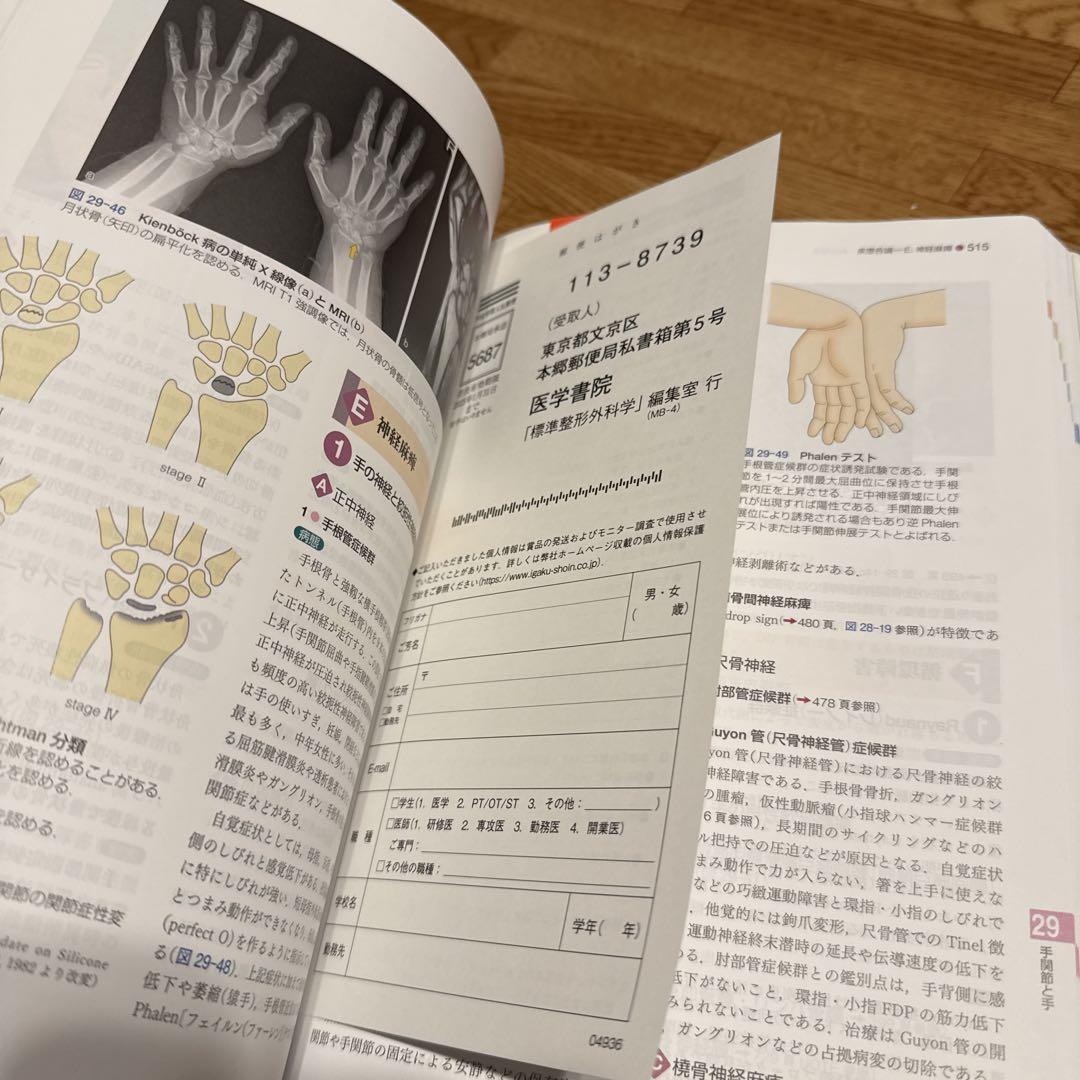 a
b
図 29-46 Kienböck 病の単純 X 線像(a)と MRI(b)
月状骨(矢印)の扁平化を認める．MRI T1 強調像では，月状骨の骨髄は
stage Ⅱ
stage Ⅳ
htman 分類
線を認めることがある．
を認める．
を認める．
関節の関節症性変
date on Silicone
, 1982 より改変)
E 神経麻痺
1 手の神経と絞扼
A 正中神経
1 手根管症候群
病態
手根骨と強靱な横手根
たトンネル(手根管)内を
に正中神経が走行する．
上昇(手関節屈曲や手指
正中神経が圧迫され絞扼性神経
も頻度の高い絞扼性神経障害で
は手の使いすぎ，妊娠，
最も多く，中年女性に多い．
る屈筋腱滑膜炎や透析患者
滑膜炎やガングリオン，手根
関節症などがある．
自覚症状としては，母指，
側のしびれと感覚低下がある．
に特にしびれが強い．短母指
とつまみ動作ができなくなり，
(perfect O)を作るように指示して
る(図 29-48)．上記症状に加え
低下や萎縮(猿手)，手根管
Phalen[フェイルン(ファーレン)
関節や手関節の固定による安静などの保存
郵便はがき
113-8739
(受取人)
東京都文京区
本郷郵便局私書箱第5号
医学書院
「標準整形外科学」編集室 行
(MB-4)
5687
◆ご記入いただきました個人情報は賞品の発送およびモニター調査で使用させ
ていただくことがあります．詳しくは弊社ホームページ収載の個人情報保護
方針をご参照ください(https://www.igaku-shoin.co.jp)．
フリガナ
ご芳名
男・女
( 歳)
ご住所
〒
□自 宅
□勤務先
E-mail
職 種
□学生(1. 医学 2. PT/OT/ST 3. その他：　)
□医師(1. 研修医 2. 専攻医 3. 勤務医 4. 開業医)
ご専門：
□その他の職種：
学校名
学年( 年)
勤務先
04936
疾患各論—E. 神経麻痺 515
図 29-49 Phalen テスト
手根管症候群の症状誘発試験である．手関
節を 1〜2 分間最大屈曲位に保持させ手根
管内圧を上昇させる．正中神経領域にしび
れが出現すれば陽性である．手関節最大伸
展位により誘発される場合もあり逆 Phalen
テストまたは手関節伸展テストとよばれる．
神経剥離術などがある．
骨間神経麻痺
drop sign(➞480 頁，図 28-19 参照)が特徴であ
尺骨神経
肘部管症候群(➞478 頁参照)
Guyon 管(尺骨神経管)症候群
yon 管(尺骨神経管)における尺骨神経の絞
神経障害である．手根骨骨折，ガングリオン
の腫瘤，仮性動脈瘤(小指球ハンマー症候群
6 頁参照)，長期間のサイクリングなどのハ
ル把持での圧迫などが原因となる．自覚症状
まみ動作で力が入らない，箸を上手に使えな
などの巧緻運動障害と環指・小指のしびれで
，他覚的には鉤爪変形，尺骨管での Tinel 徴
運動神経終末潜時の延長や伝導速度の低下を
ある．肘部管症候群との鑑別点は，手背側に感
低下がないこと，環指・小指 FDP の筋力低下
みられないことである．治療は Guyon 管の開
，ガングリオンなどの占拠病変の切除である．
C 橈骨神経麻痺
29
手関節と手